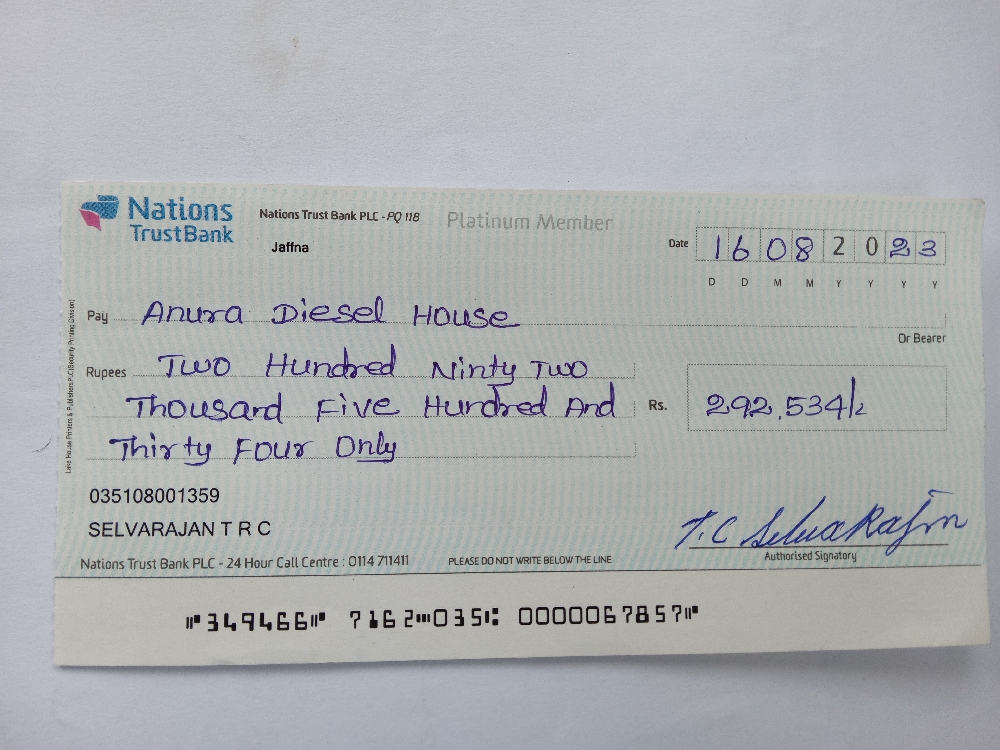 Nations
TrustBank
Nations Trust Bank PLC - PQ 118
Platinum Member
Jaffna
Date 16 08 2023
D D M M Y Y Y Y
Pay Anura Diesel House
Or Bearer
Rupees Two Hundred Ninty Two
Thousand Five Hundred And
Thirty Four Only
Rs. 292,534/=
Lake House Printers & Publishers PLC (Security Printing Division)
035108001359
SELVARAJAN T R C
T. C Selvarajan
Authorised Signatory
Nations Trust Bank PLC - 24 Hour Call Centre : 0114 711411
PLEASE DO NOT WRITE BELOW THE LINE
⑈349466⑈ 7162⑉035⑆ 0000067857⑈